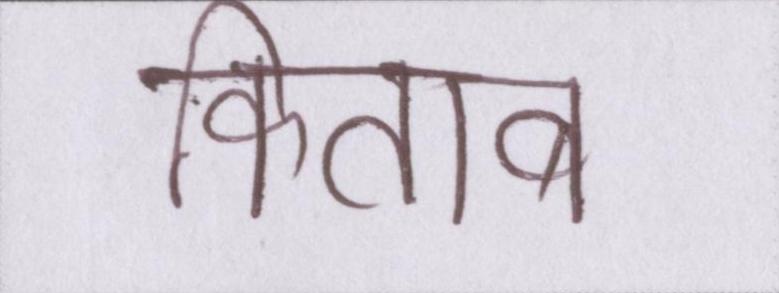 किताब